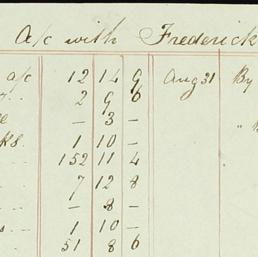 A/c with Frederick
a/c 12 14 9 Aug 31 By
2 9 6
— 3 —
ks. 1 10 —
152 11 4
7 12 8
— 8 —
1 10 —
51 8 6